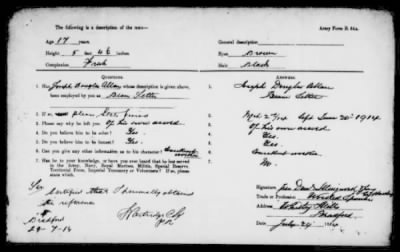 The following is a description of the man:—
Army Form B. 64A.
Age 17 years
General description
Height 5 feet 4½ inches
Eyes Brown
Complexion Fresh
Hair Black
QUESTIONS.
ANSWERS.
1. Has Joseph Douglas Allan whose description is given above,
been employed by you as Beam Setter
1. Joseph Douglas Allan
Beam Setter
2. If so,
2.
June 20th 1914
3. Please say why he left you. Of his own accord
3. Of his own accord
4. Do you believe him to be sober? Yes.
4. Yes.
5. Do you believe him to be honest? Yes.
5. Yes.
6. Can you give any other information as to his character? Excellent
6. Excellent
7. Has he to your knowledge, or have you ever heard that he has served
in the Army, Navy, Royal Marines, Militia, Special Reserve,
Territorial Force, Imperial Yeomanry or Volunteers? If so, please
state which.
7. No.
Certified that I personally obtained
the reference
Bradford
29-7-14
Signature
Trade or Profession Worsted Spinners
Address
Bradford
Date July 29th 1914